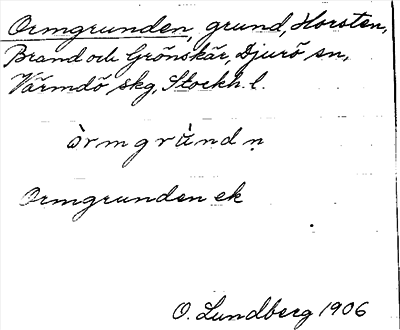 Ormgrunden, grund, Horsten,
Brand och Grönskär, Djurö sn,
Värmdö skg, Stockh. l.
òrmgrùndṇ
Ormgrunden ek
O. Lundberg 1906